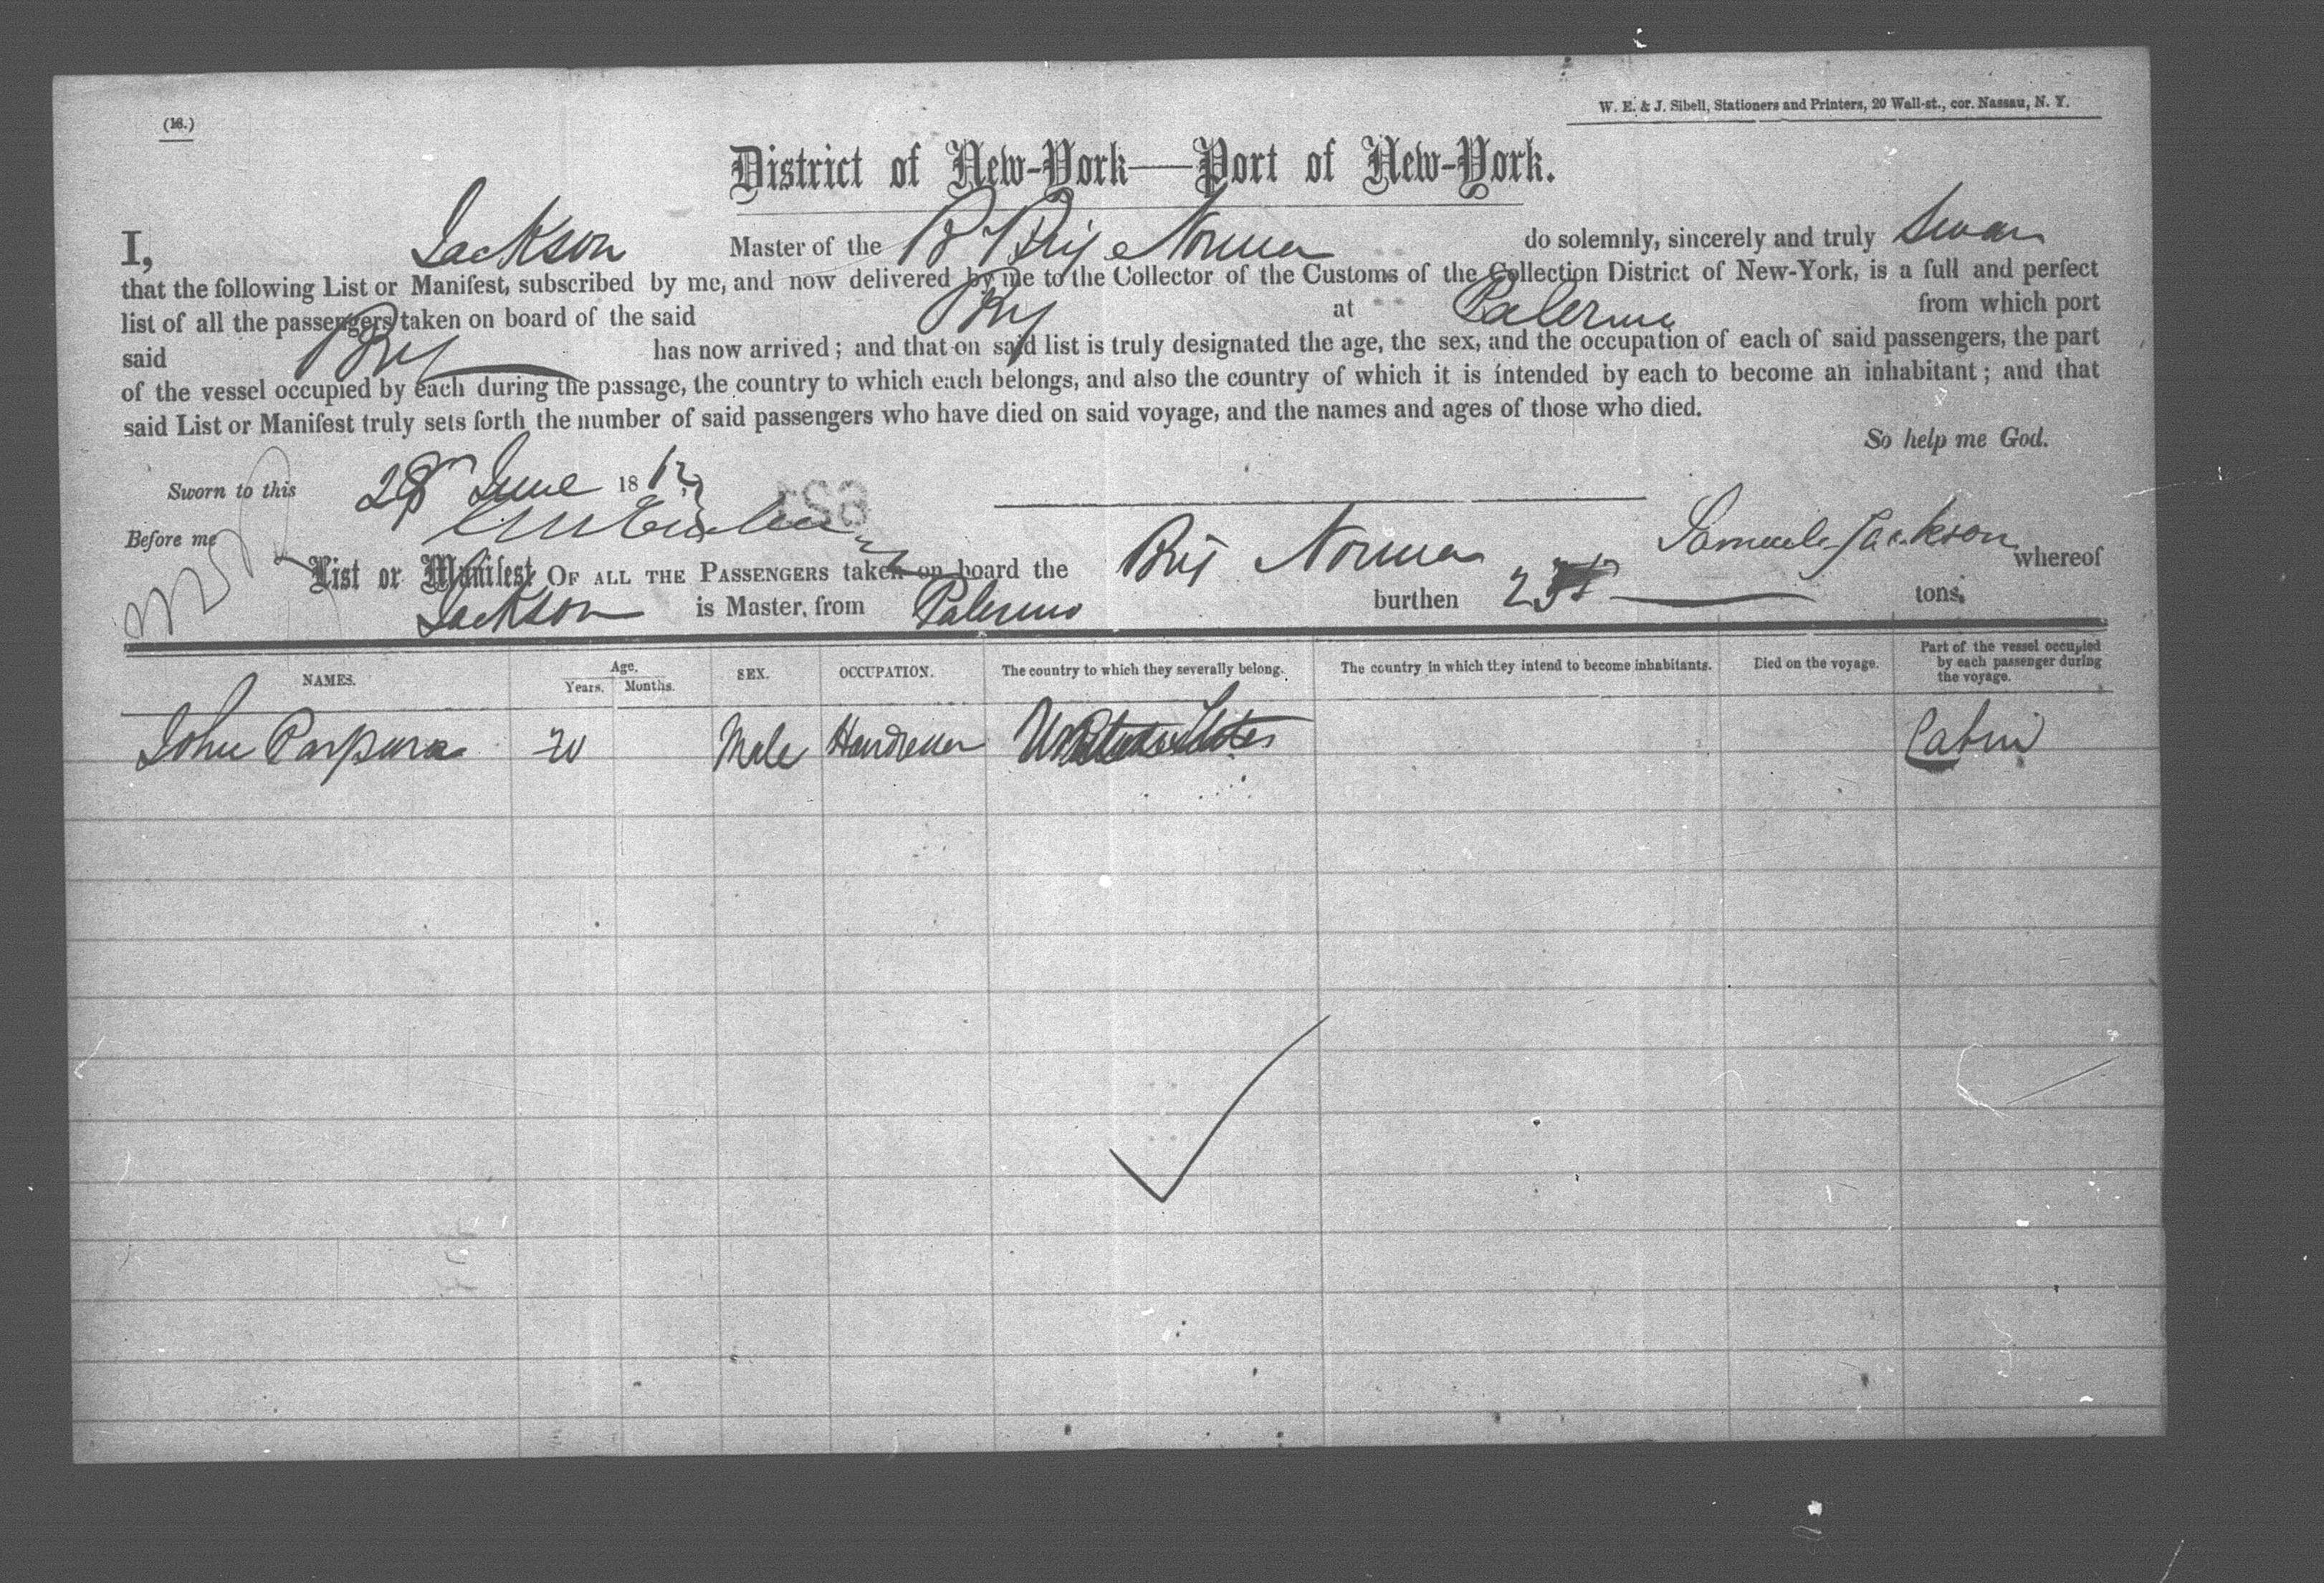 (18.)
W. E. & J. Sibell, Stationers and Printers, 20 Wall-st., cor. Nassau, N. Y.
District of New-York—Port of New-York.
I, Jackson Master of the Br Brig Norma do solemnly, sincerely and truly Swear
that the following List or Manifest, subscribed by me, and now delivered by me to the Collector of the Customs of the Collection District of New-York, is a full and perfect
list of all the passengers taken on board of the said Brig at Palermo from which port
said Brig has now arrived; and that on said list is truly designated the age, the sex, and the occupation of each of said passengers, the part
of the vessel occupied by each during the passage, the country to which each belongs, and also the country of which it is intended by each to become an inhabitant; and that
said List or Manifest truly sets forth the number of said passengers who have died on said voyage, and the names and ages of those who died.
So help me God.
Sworn to this 28 June 186
Before me
Samuel Jackson
List or Manifest OF ALL THE PASSENGERS taken on board the Brig Norma whereof
Jackson is Master, from Palermo burthen tons.
NAMES. Age. Years. Months. SEX. OCCUPATION. The country to which they severally belong. The country in which they intend to become inhabitants. Died on the voyage. Part of the vessel occupied by each passenger during the voyage.
John Parpura 20 Male States Cabin